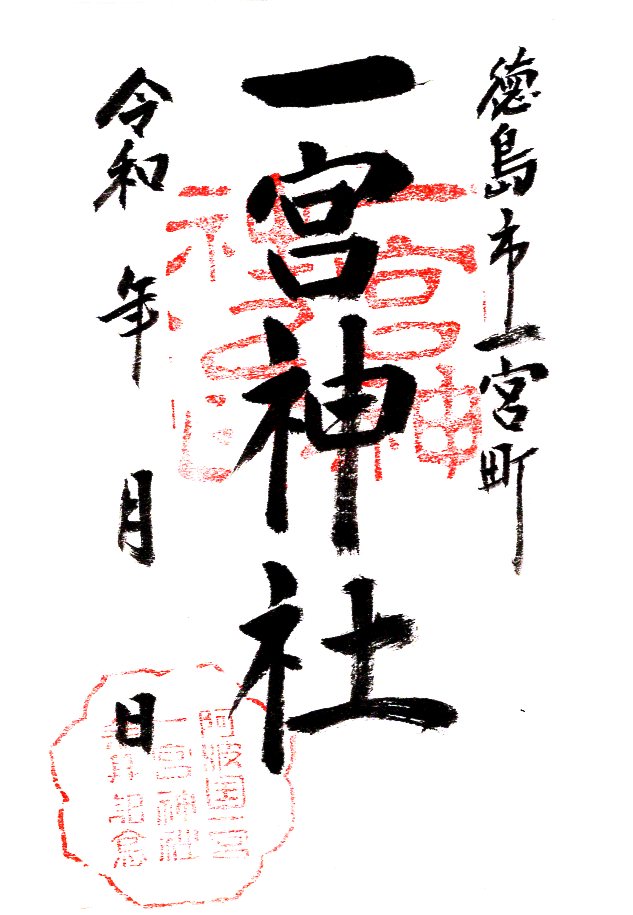 徳島市一宮町
一宮神社
令和 年 月 日
阿波国一宮
一宮神社
参拝記念